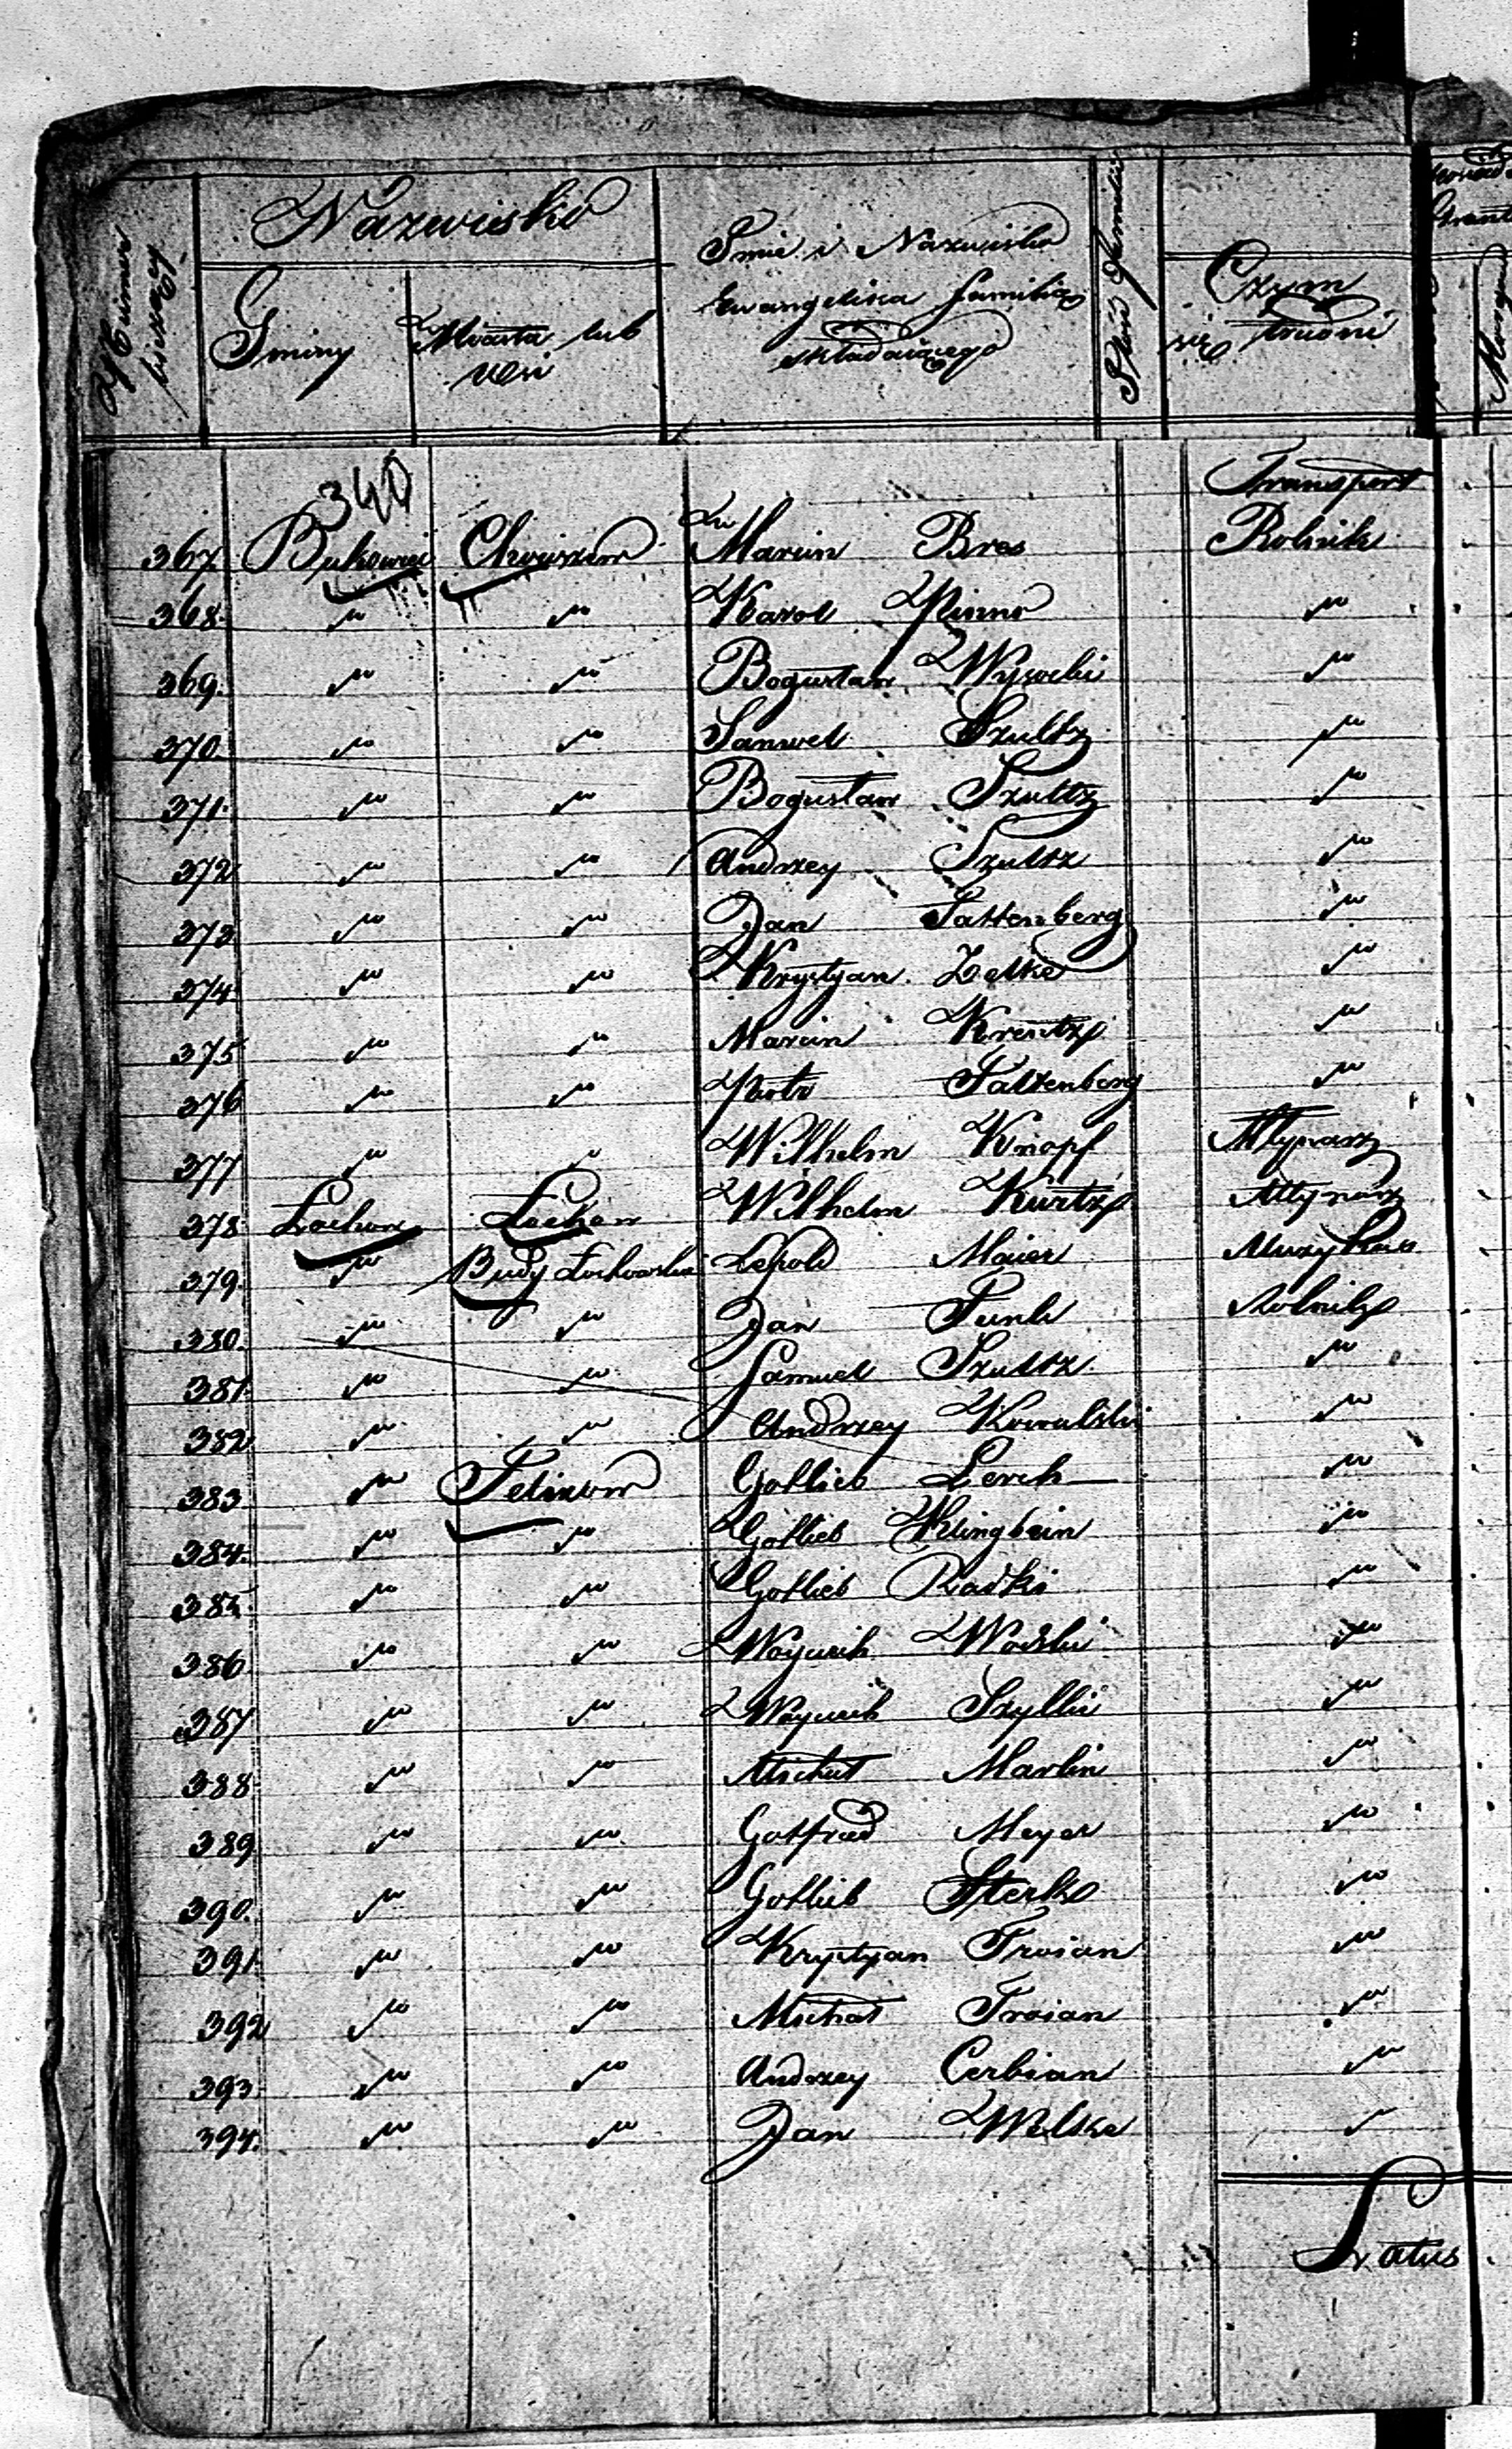 Numer bieżący
Nazwisko
Gminy
Miasta lub wsi
Imie i Nazwisko
Ewangelika familią
składaiącego
Czym
się trudni
340
Transport
367. Bukowiec Marcin Bres Rolnik
368. " " Karol "
369. " " Bogusław Wysocki "
370. " " Samuel Szultz "
371. " " Bogusław Szultz "
372 " " Andrzey Szultz "
373 " " Jan Fattenberg "
374 " " Krystyan Zelke "
375 " " Marcin Kreutz "
376 " " Piotr Faltenberg "
377 " " Wilhelm Knopf Młynarz
378 Łochow Łochow Wilhelm Kurtz Młynarz
379. " Budy Łochowskie Lepold Maier Muzykus
380. " " Jan Funk Rolnik
381. " " Samuel Szultz "
382. " " Andrzey Kowalski "
383 " Felixow Gotlieb Lerch "
384. " " Gotlieb Klingbein "
385. " " Gotlieb Radki "
386 " " Woyciech "
387 " " Woyciech Szylki "
388 " " Michał Marlin "
389 " " Gotfried Meyer "
390. " " Gotlieb Sterke "
391 " " Krystyan Troian "
392 " " Michał Troian "
393 " " Andrzey Cerbian "
394. " " Jan Welske "
Latus